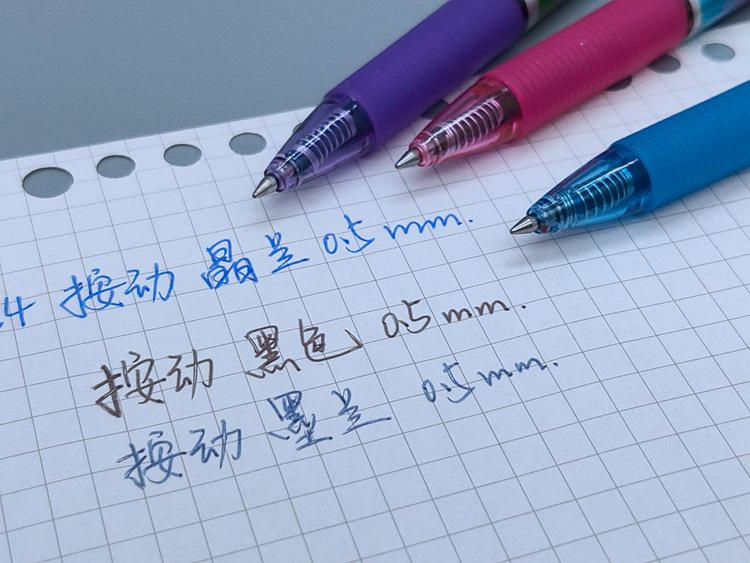 .4 按动 晶呈 0.5mm.
按动 黑色 0.5mm.
按动 墨呈 0.5mm.